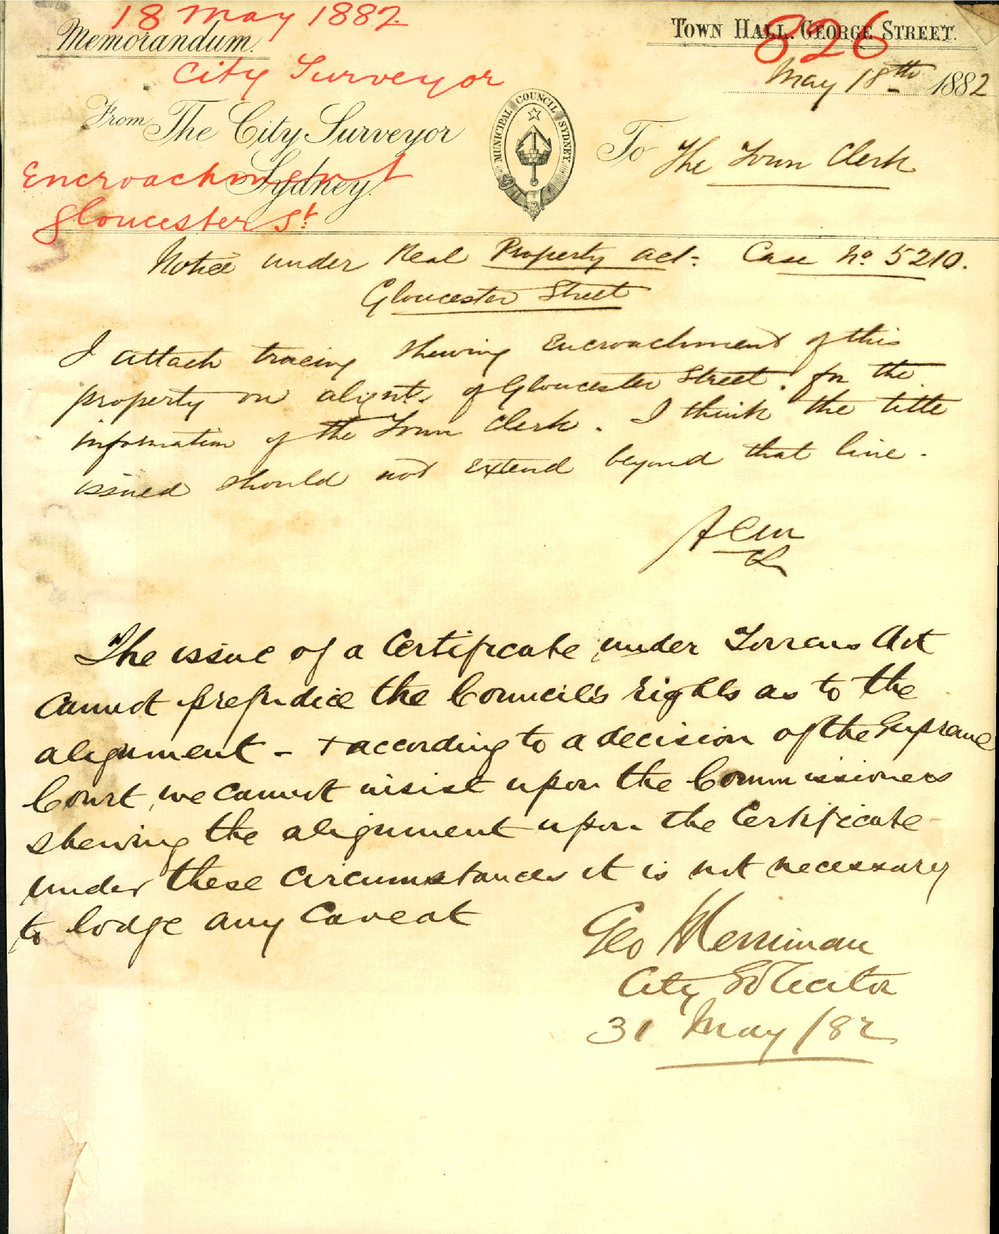 18 May 1882
Memorandum.
City Surveyor
826
TOWN HALL, GEORGE STREET.
May 18th 1882
From The City Surveyor
Sydney.
Encroachment
Gloucester St
MUNICIPAL COUNCIL SYDNEY
To The Town Clerk
Notice under Real Property Act. Case No 5210.
Gloucester Street
I attach tracing shewing Encroachment of this
property on alignt. of Gloucester Street. for the
information of the Town Clerk. I think the title
issued should not extend beyond that line.
The issue of a Certificate under Torrens Act
cannot prejudice the Council's rights as to the
alignment - & according to a decision of the Supreme
Court we cannot insist upon the Commissioners
shewing the alignment upon the Certificate
under these circumstances it is not necessary
to lodge any Caveat
Geo Merriman
City Solicitor
31 May /82